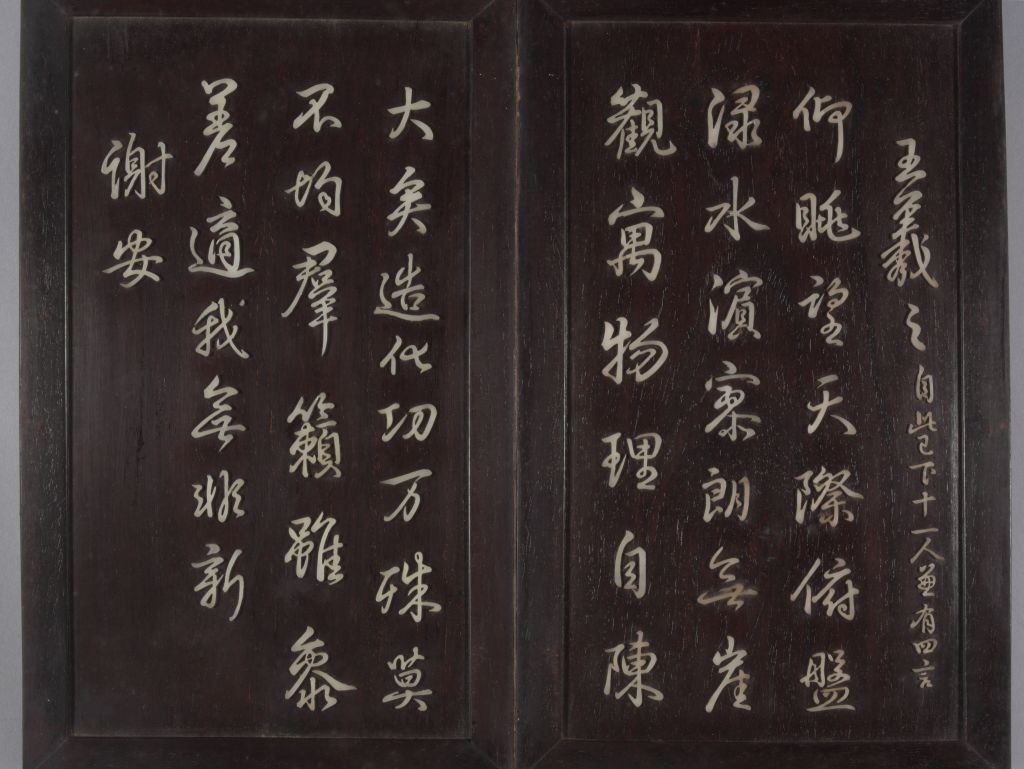 王羲之 自此已下十一人兼有四言
仰眺望天際俯盤
渌水濱寥朗無崖
觀寓物理自陳
大矣造化功万殊莫
不均群籟雖参
差適我無非新
謝安